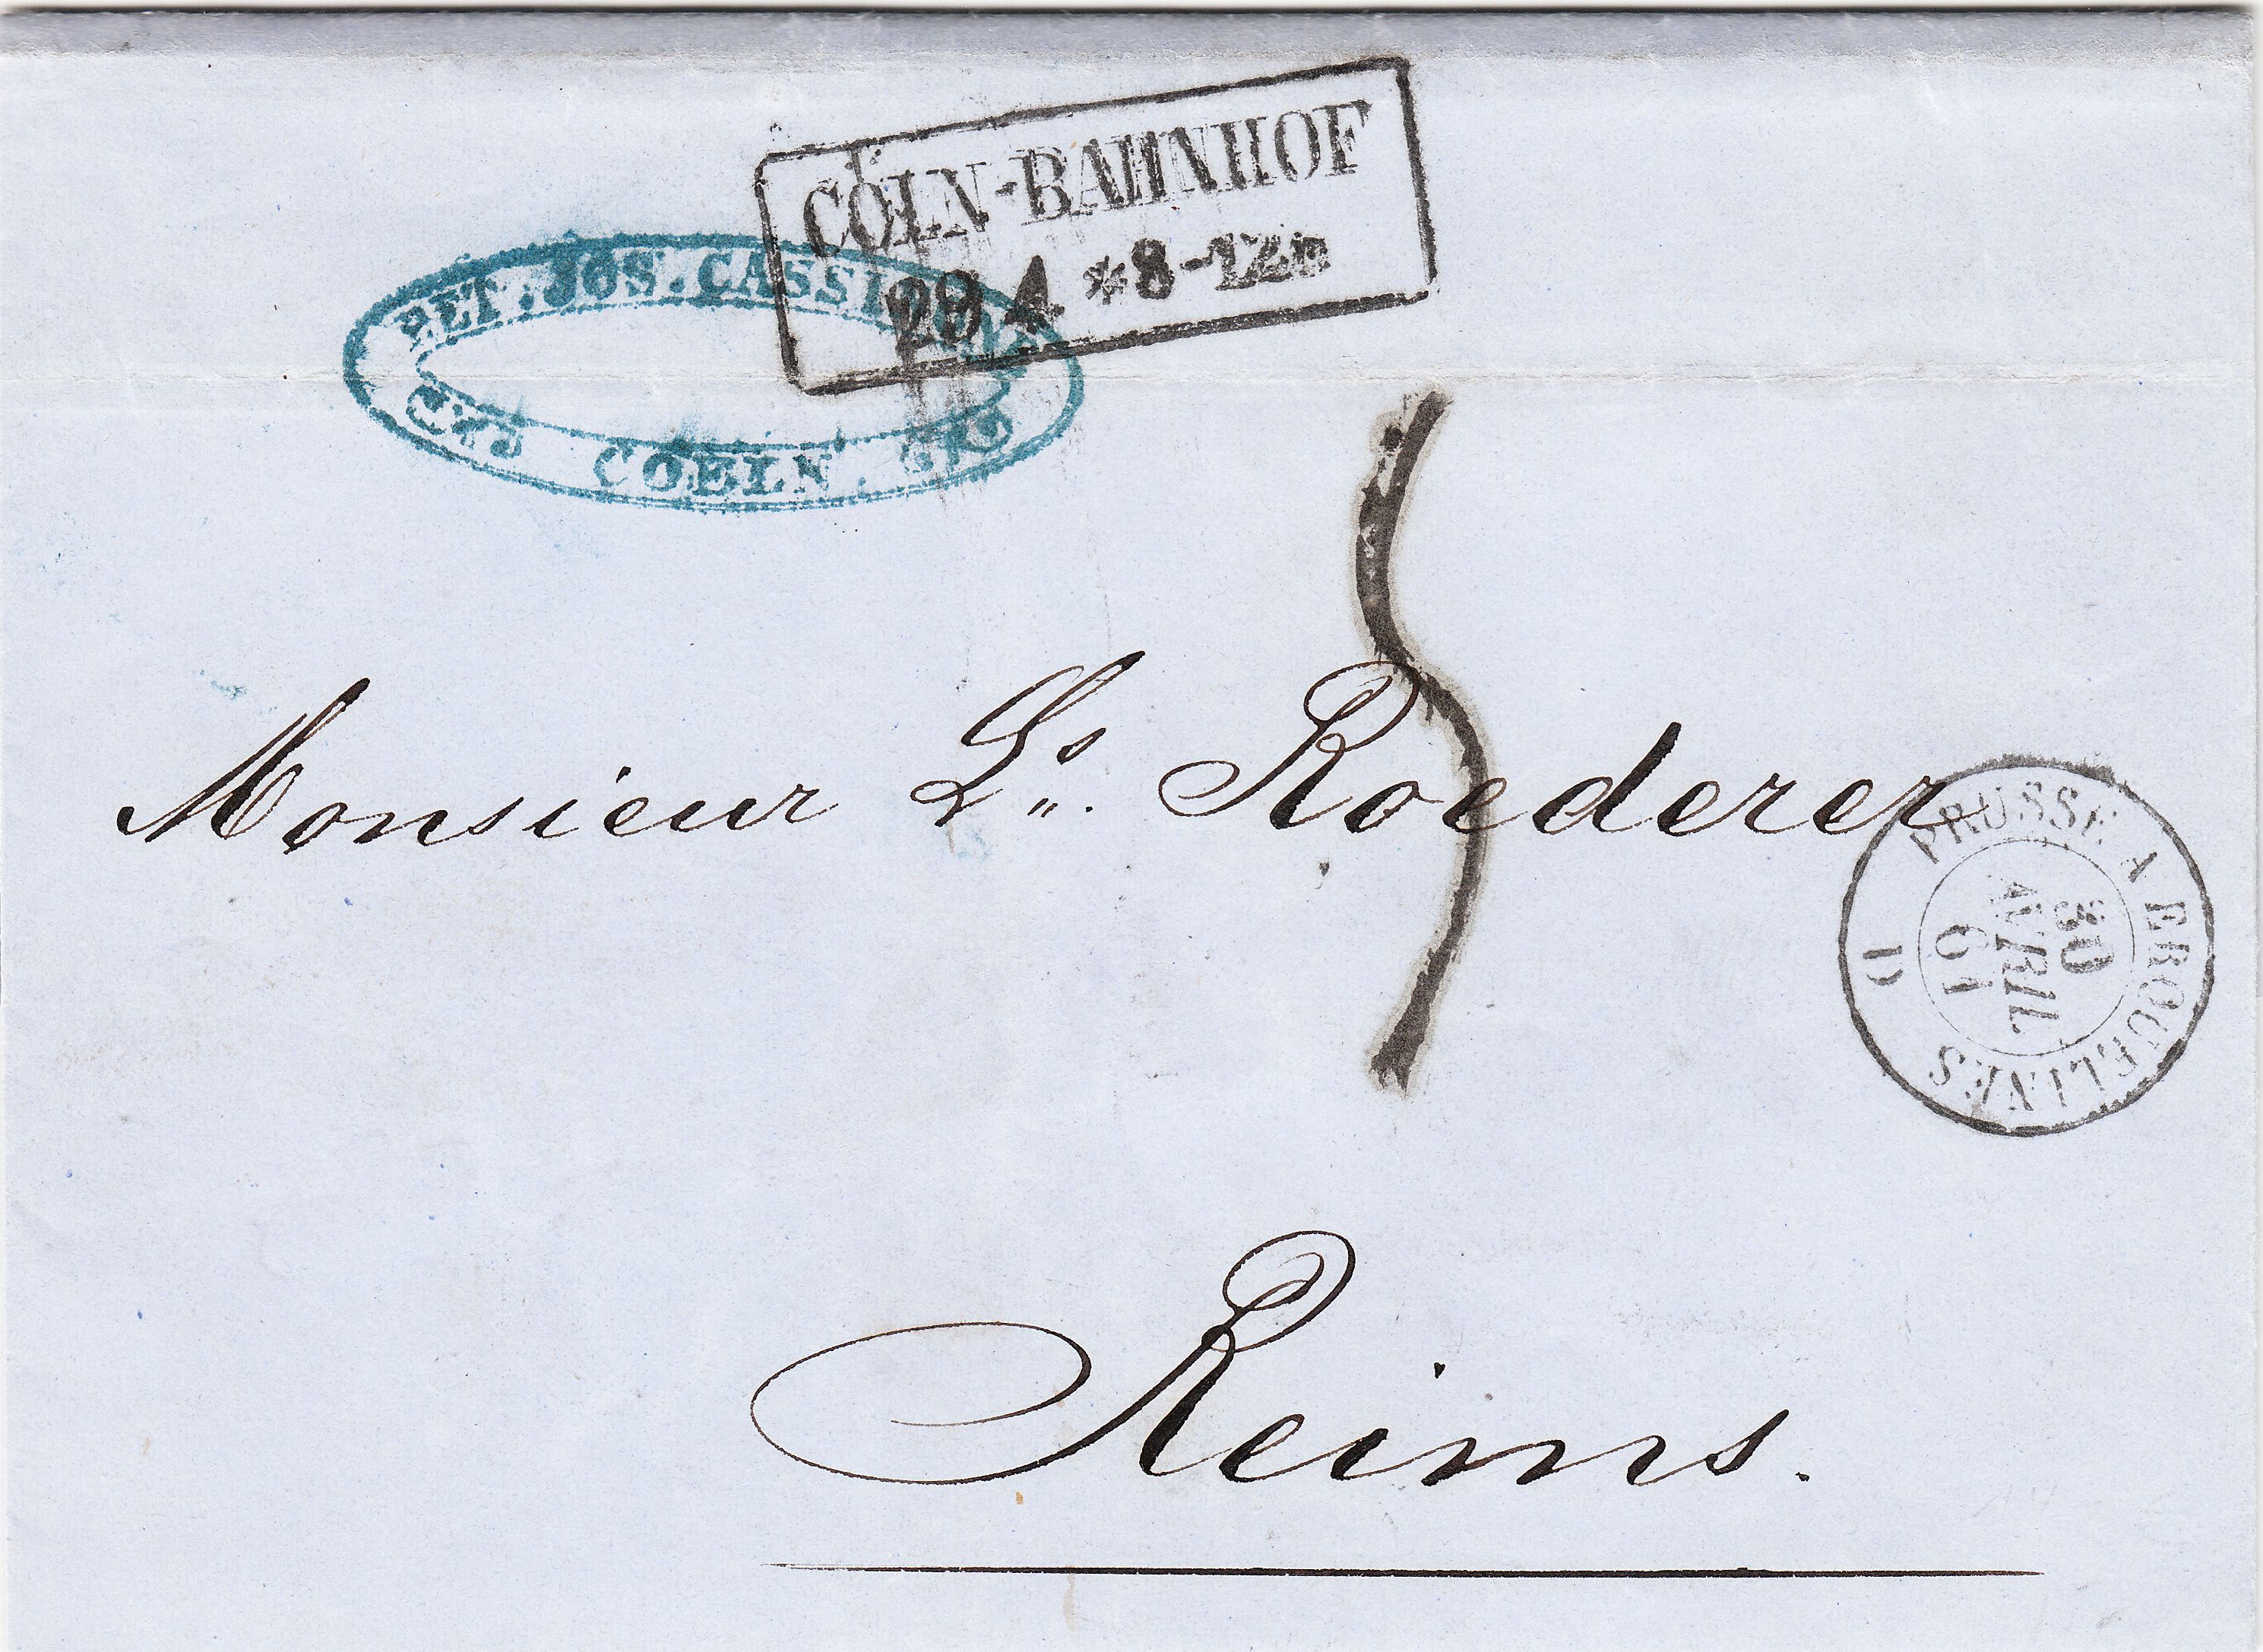 CÖLN-BAHNHOF
29 4 * 8-12
PET. JOS. CASSI
COELN
5
Monsieur Ls. Roederer
PRUSSE A ERQUELINES
30
AVRIL
61
D
Reims.